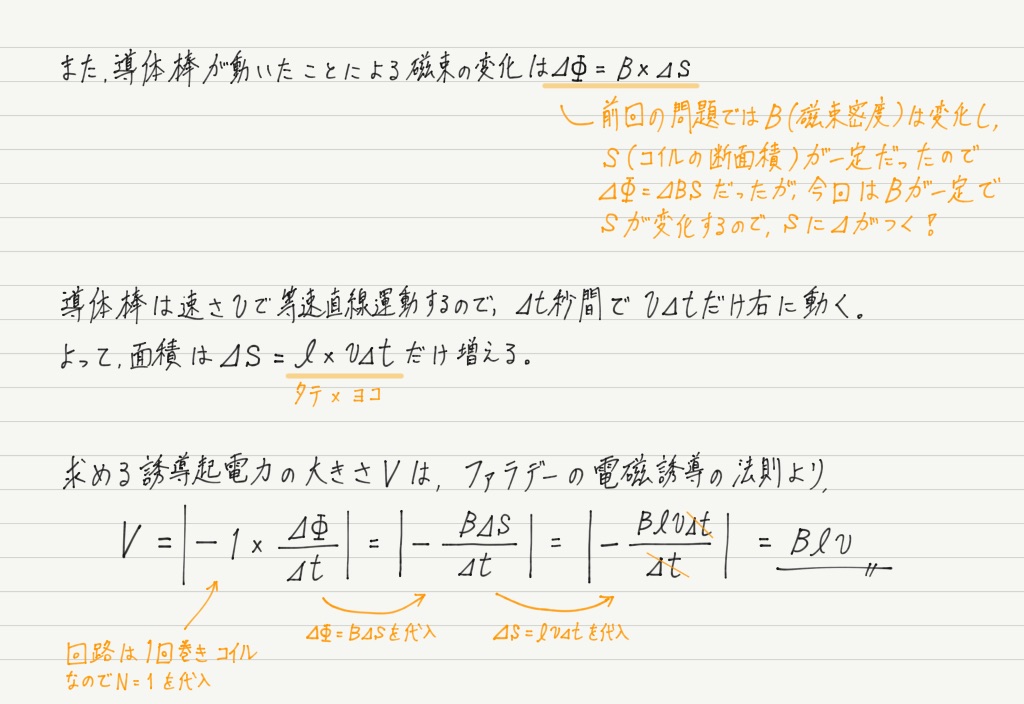 また、導体棒が動いたことによる磁束の変化はΔΦ = B × ΔS
前回の問題ではB(磁束密度)は変化し、
S(コイルの断面積)が一定だったので
ΔΦ=ΔBSだったが、今回はBが一定で
Sが変化するので、SにΔがつく!
導体棒は速さvで等速直線運動するので、Δt秒間でvΔtだけ右に動く。
よって、面積はΔS = l × vΔtだけ増える。
タテ × ヨコ
求める誘導起電力の大きさVは、ファラデーの電磁誘導の法則より、
V = |−1 × ΔΦ/Δt| = |−BΔS/Δt| = |−BlvΔt/Δt| = Blv
ΔΦ=BΔSを代入 ΔS=lvΔtを代入
回路は1回巻きコイル
なのでN=1を代入